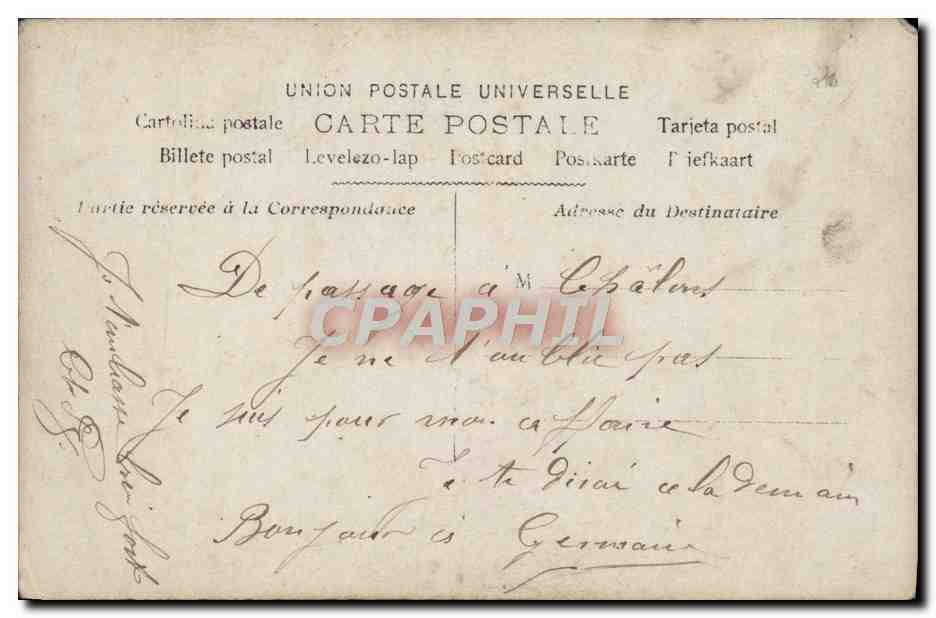 UNION POSTALE UNIVERSELLE
Cartolina postale CARTE POSTALE Tarjeta postal
Billete postal Levelezo-lap Postcard Postkarte Briefkaart
Partie réservée à la Correspondance
Adresse du Destinataire
M
De passage à Châlons
Je ne t'oublie pas
Je suis pour mon affaire
Je te dirai cela demain
Bonjour à Germaine
Je t'embrasse bien fort
CPAPHIL